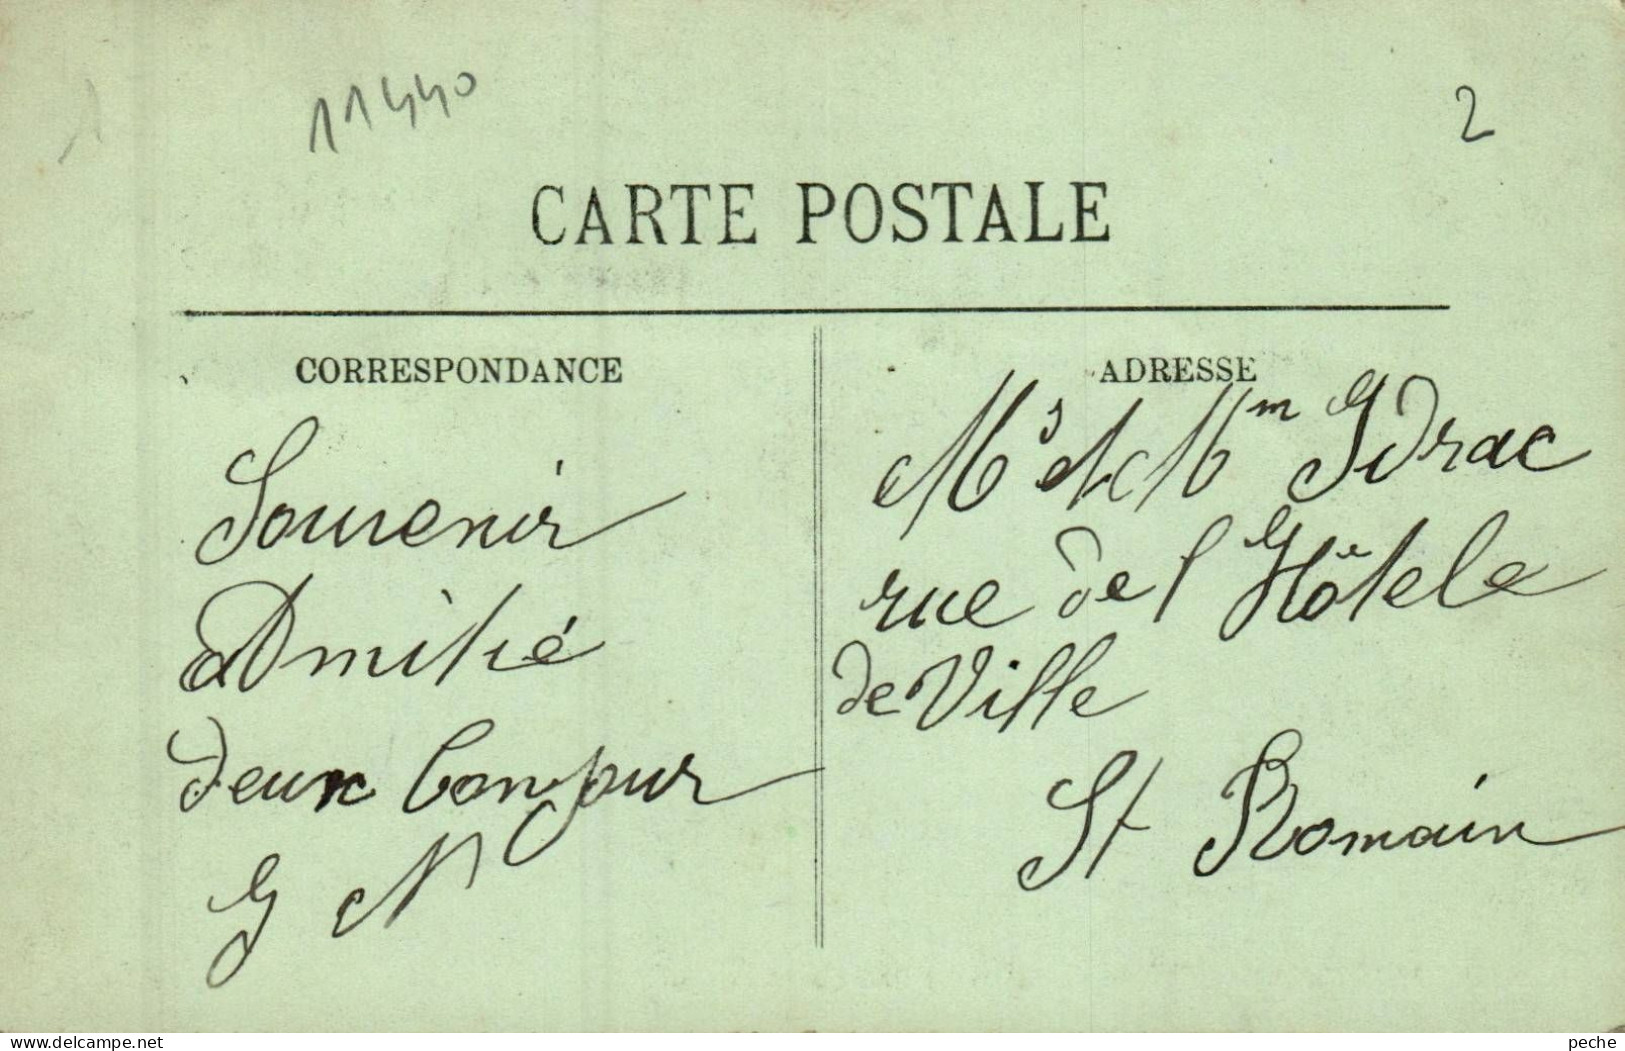 11440
2
CARTE POSTALE
CORRESPONDANCE
Souvenir
Amitié
deux bonjour
G N
ADRESSE
Mr et Mm Idrac
rue de l'Hôtel
de Ville
St Romain
www.delcampe.net
peche